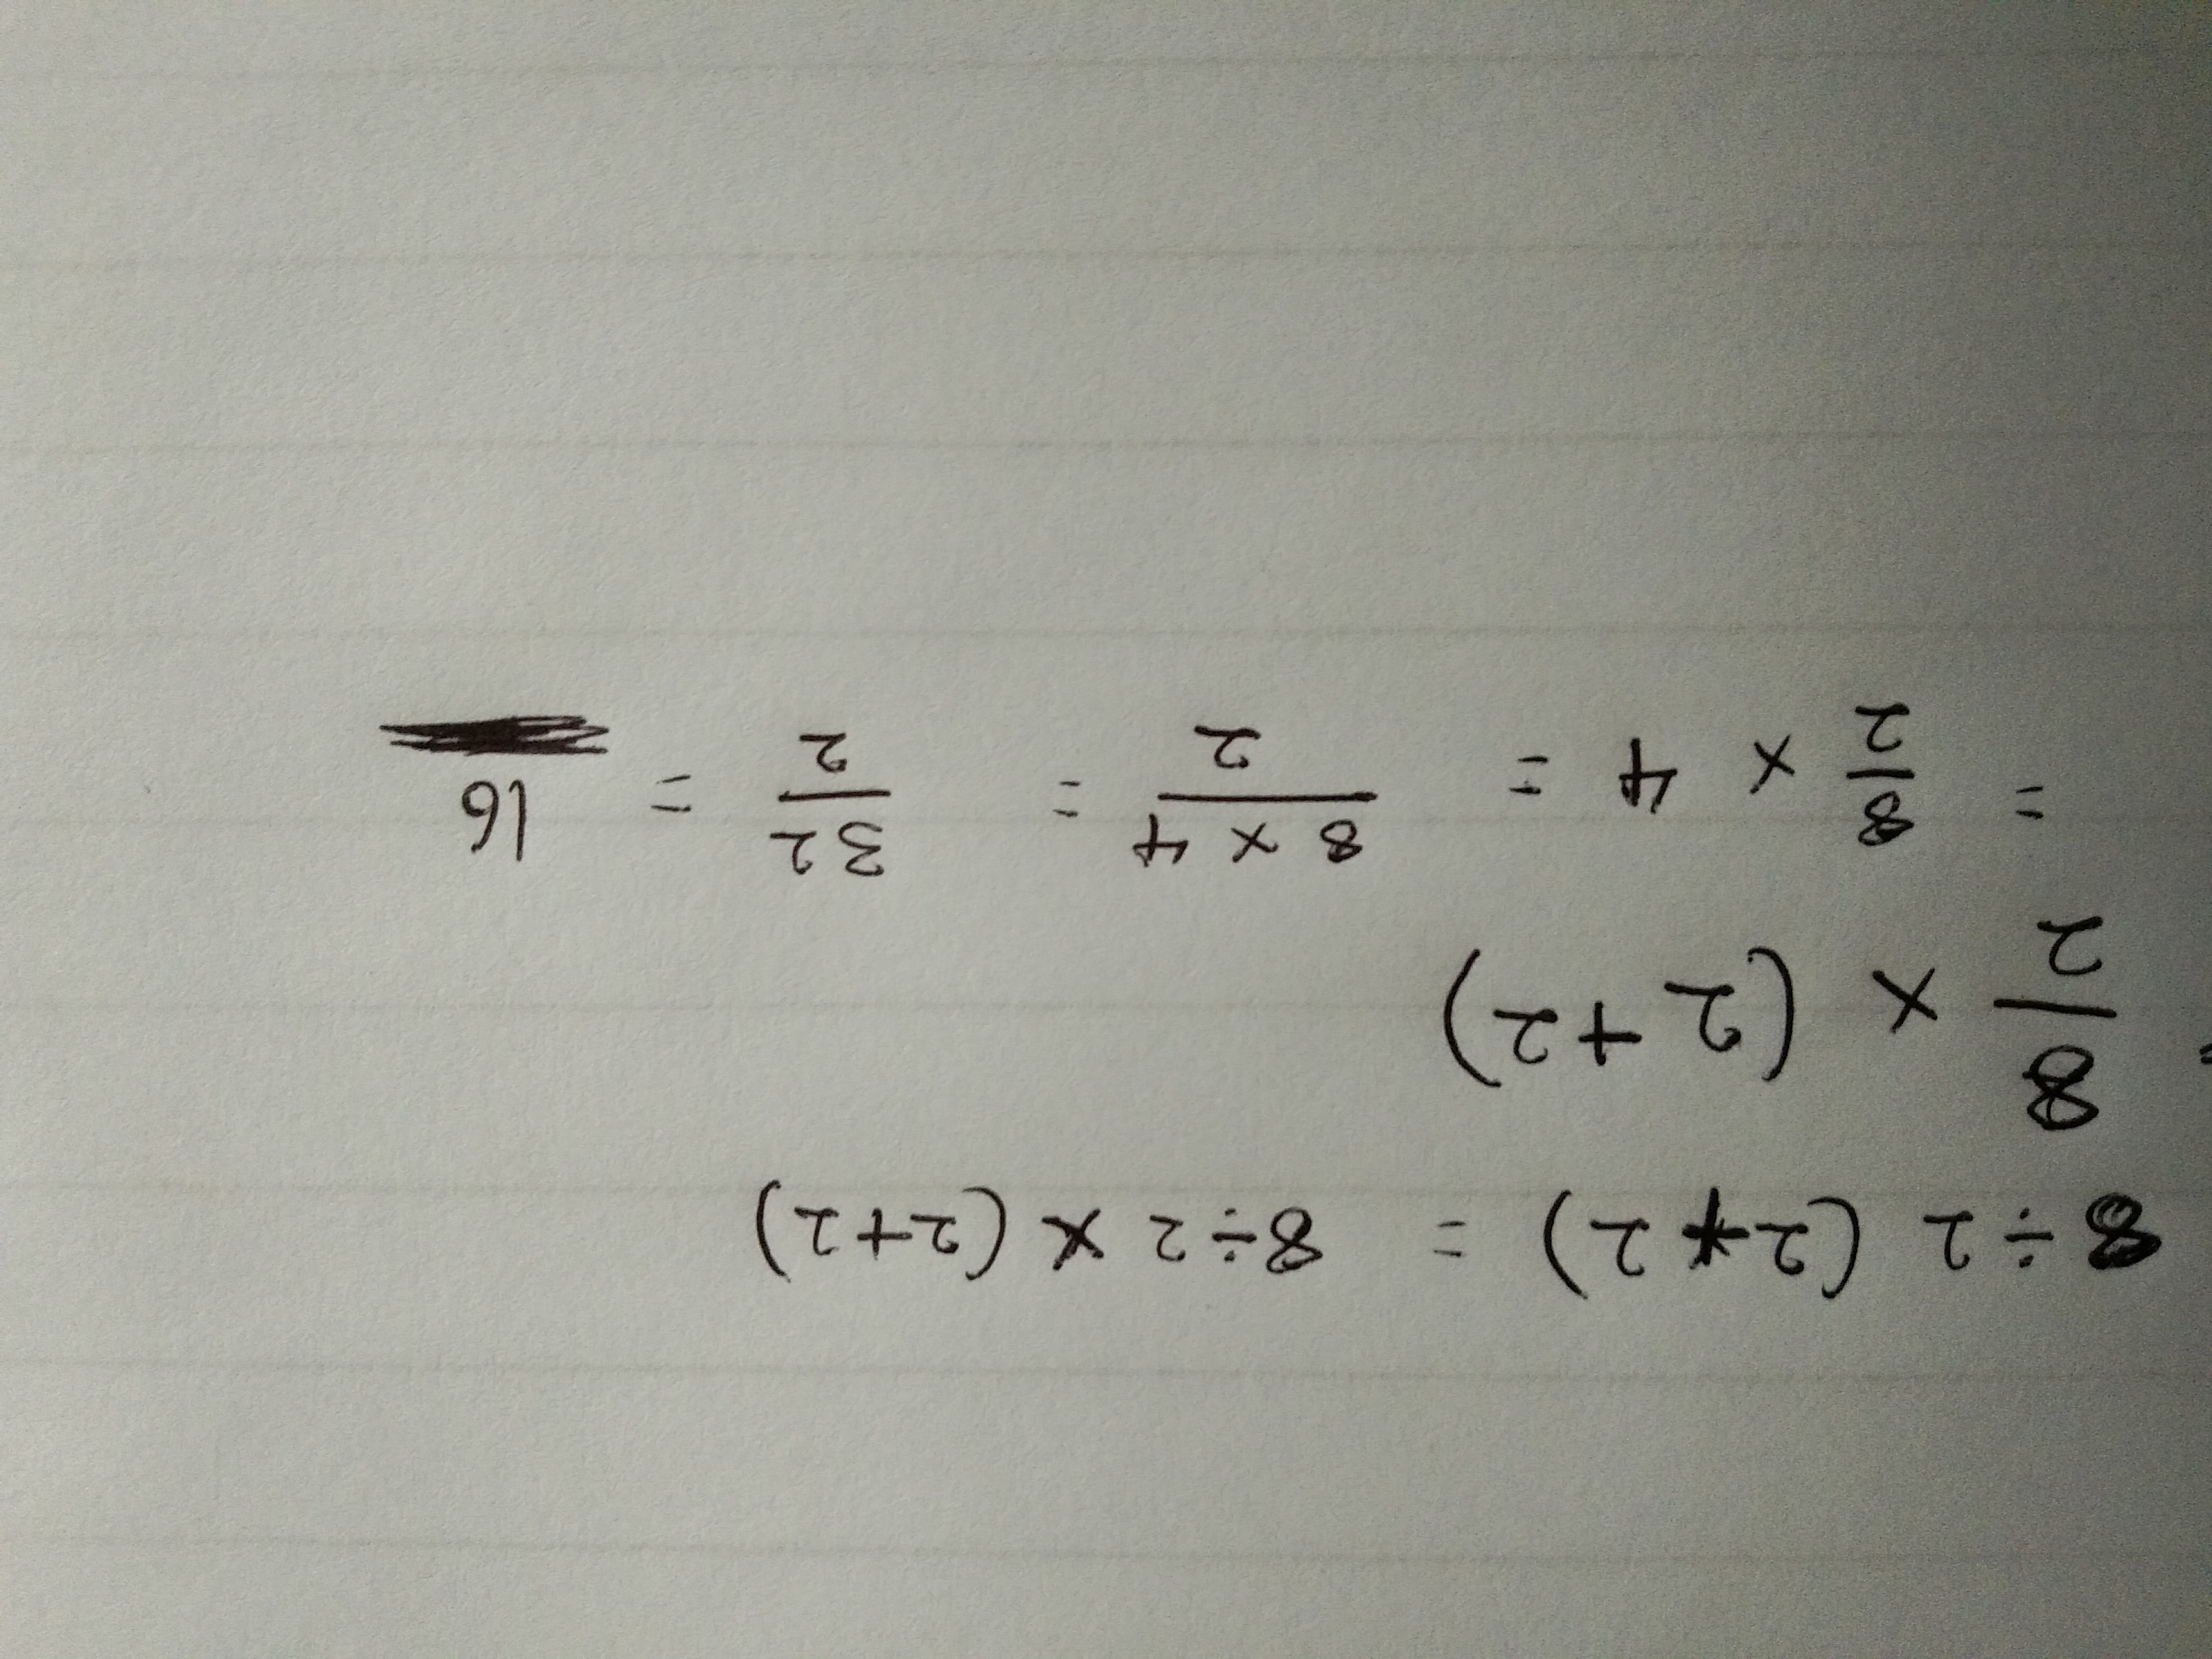 8 ÷ 2 (2 + 2) = 8 ÷ 2 × (2 + 2)
= 8/2 × (2 + 2)
= 8/2 × 4 = (8 × 4)/2 = 32/2 = 16